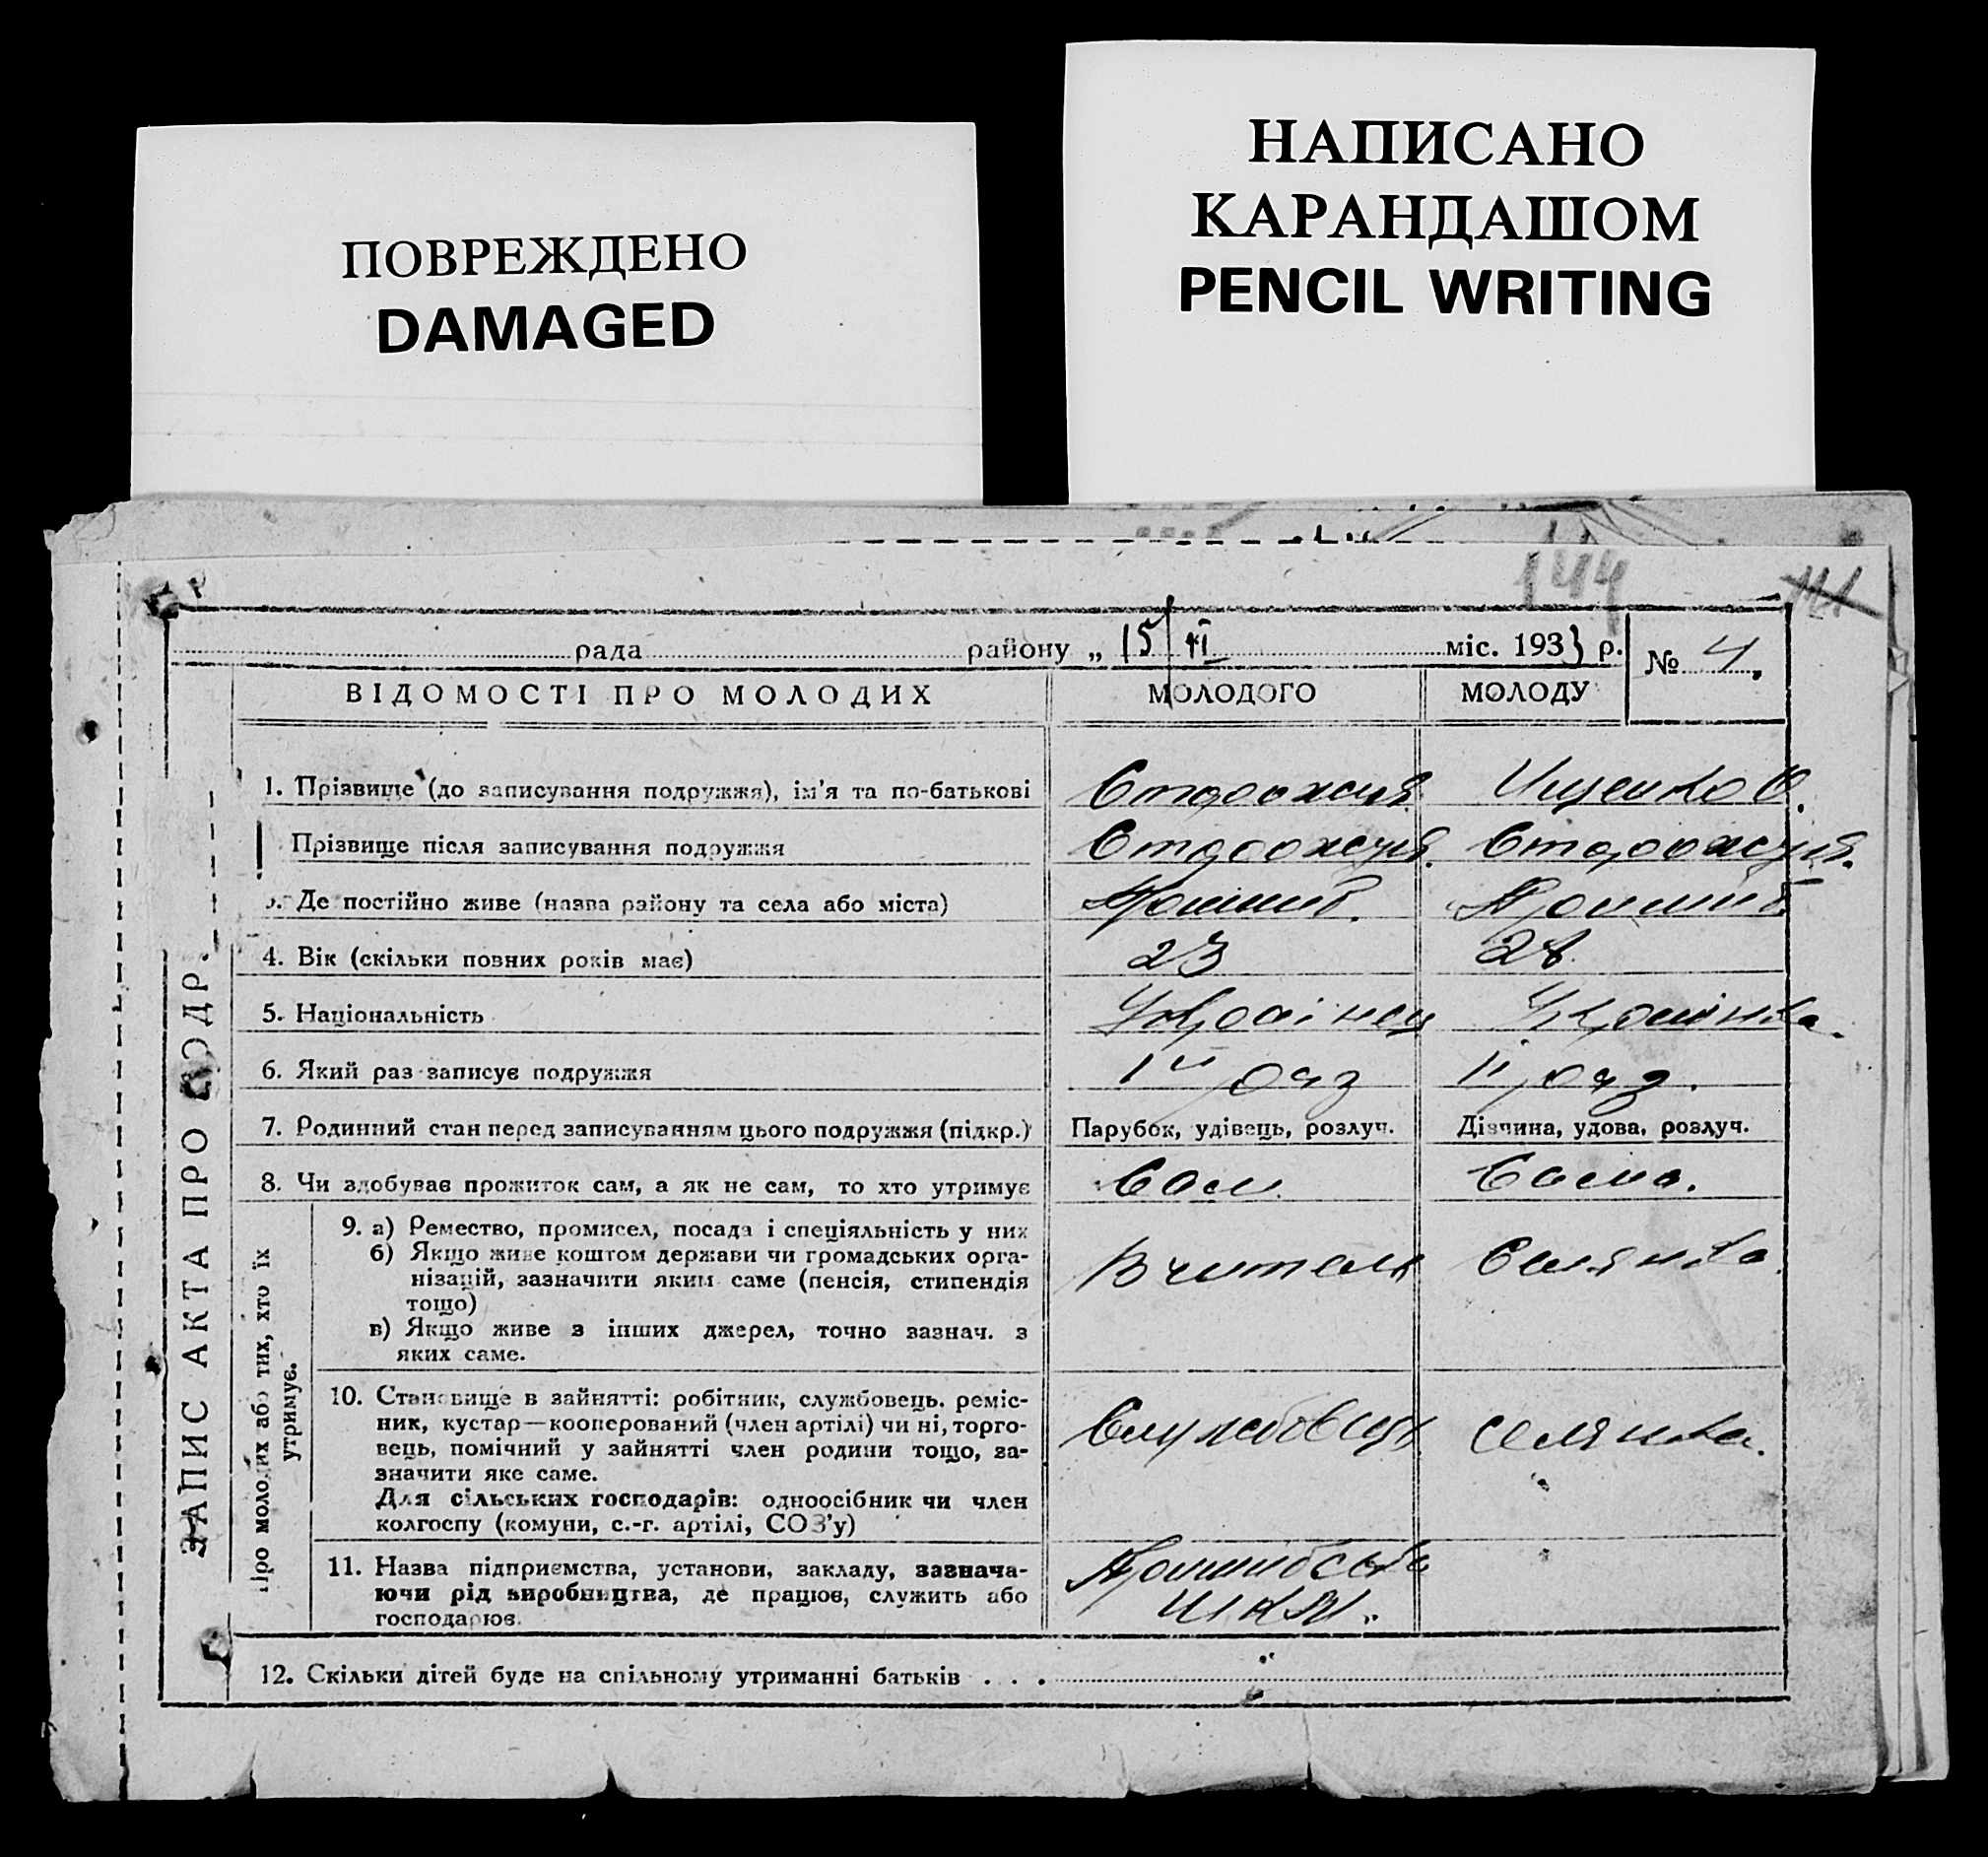 ПОВРЕЖДЕНО
DAMAGED
НАПИСАНО
КАРАНДАШОМ
PENCIL WRITING
144
141
рада району „ 15/VI міс. 1933 р.
№ 4
ВІДОМОСТІ ПРО МОЛОДИХ МОЛОДОГО МОЛОДУ
ЗАПИС АКТА ПРО ПОДР.
1. Прізвище (до записування подружжя), ім'я та по-батькові Ищенко О.
Прізвище після записування подружжя
3. Де постійно живе (назва району та села або міста)
4. Вік (скільки повних років має) 23 28.
5. Національність Українец Українка.
6. Який раз записує подружжя 1й раз ІІ раз.
7. Родинний стан перед записуванням цього подружжя (підкр.) Парубок, удівець, розлуч. Дівчина, удова, розлуч.
8. Чи здобував прожиток сам, а як не сам, то хто утримує Сам. Сама.
Про молодих або тих, хто їх
утримує.
9. а) Ремество, промисел, посада і спеціяльність у них
б) Якщо живе коштом держави чи громадських орга-
нізацій, зазначити яким саме (пенсія, стипендія
тощо)
в) Якщо живе з інших джерел, точно зазнач. з
яких саме.
Вчитель Селянка.
10. Становище в зайнятті: робітник, службовець, реміс-
ник, кустар—кооперований (член артілі) чи ні, торго-
вець, помічний у зайнятті член родини тощо, за-
значити яке саме.
Для сільських господарів: одноосібник чи член
колгоспу (комуни, с.-г. артілі, СОЗ'у)
Службовець селянка.
11. Назва підприємства, установи, закладу, зазнача-
ючи рід виробництва, де працює, служить або
господарює.
12. Скільки дітей буде на спільному утриманні батьків . . .